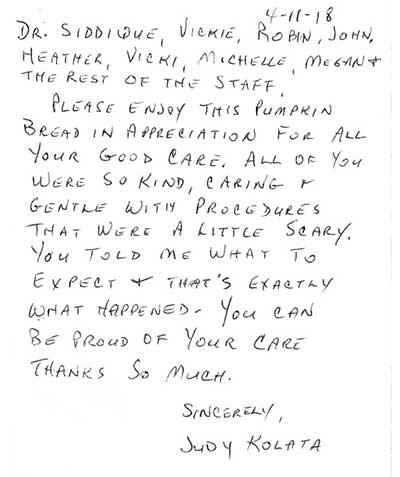 4-11-18
DR. SIDDIQUE, VICKIE, ROBIN, JOHN,
HEATHER, VICKI, MICHELLE, MEGAN +
THE REST OF THE STAFF,
PLEASE ENJOY THIS PUMPKIN
BREAD IN APPRECIATION FOR ALL
YOUR GOOD CARE. ALL OF YOU
WERE SO KIND, CARING +
GENTLE WITH PROCEDURES
THAT WERE A LITTLE SCARY.
YOU TOLD ME WHAT TO
EXPECT + THAT'S EXACTLY
WHAT HAPPENED - YOU CAN
BE PROUD OF YOUR CARE
THANKS SO MUCH.
SINCERELY,
JUDY KOLATA